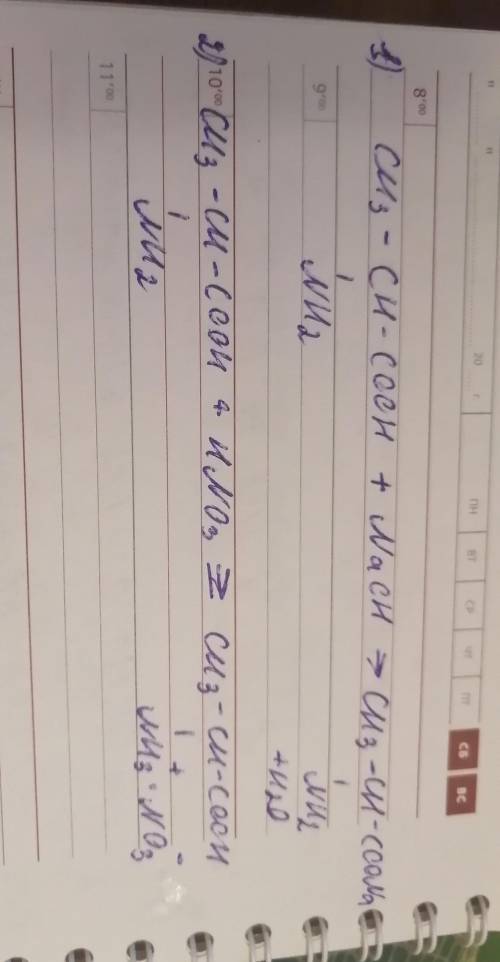 " " 20 г. ПН ВТ СР ЧТ ПТ СБ ВС
8°00
1) CH3 - CH - COOH + NaOH → CH3 - CH - COONa
NH2 NH2
9°00
+H2O
2) 10°00 CH3 - CH - COOH + HNO3 ⇒ CH3 - CH - COOH
NH2 NH3⁺ · NO3⁻
11°00